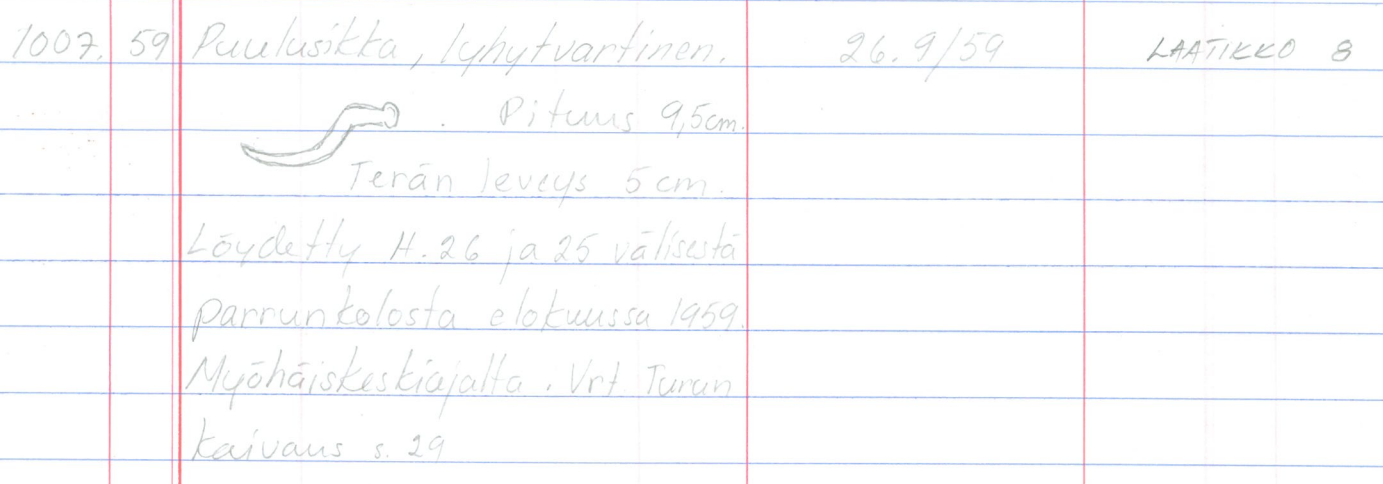 1007. 59 Puulusikka, lyhytvartinen. 26.9/59 LAATIKKO 8
. Pituus 9,5cm.
Terän leveys 5cm.
Löydetty H.26 ja 25 välisestä
parrunkolosta elokuussa 1959.
Myöhäiskeskiajalta. Vrt Turun
kaivaus s. 29